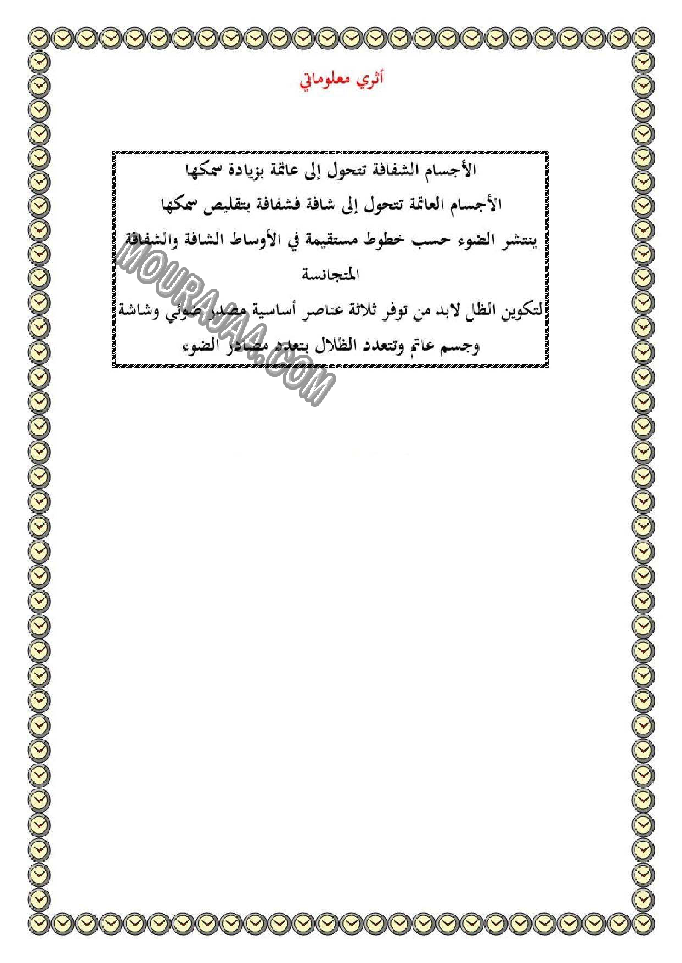 أثري معلوماتي
الأجسام الشفافة تتحول إلى عاتمة بزيادة سمكها
الأجسام العاتمة تتحول إلى شافة فشفافة بتقليص سمكها
ينتشر الضوء حسب خطوط مستقيمة في الأوساط الشافة والشفافة
المتجانسة
لتكوين الظل لابد من توفر ثلاثة عناصر أساسية مصدر ضوئي وشاشة
وجسم عاتم وتتعدد الظلال بتعدد مصادر الضوء
MOURAJAA.COM